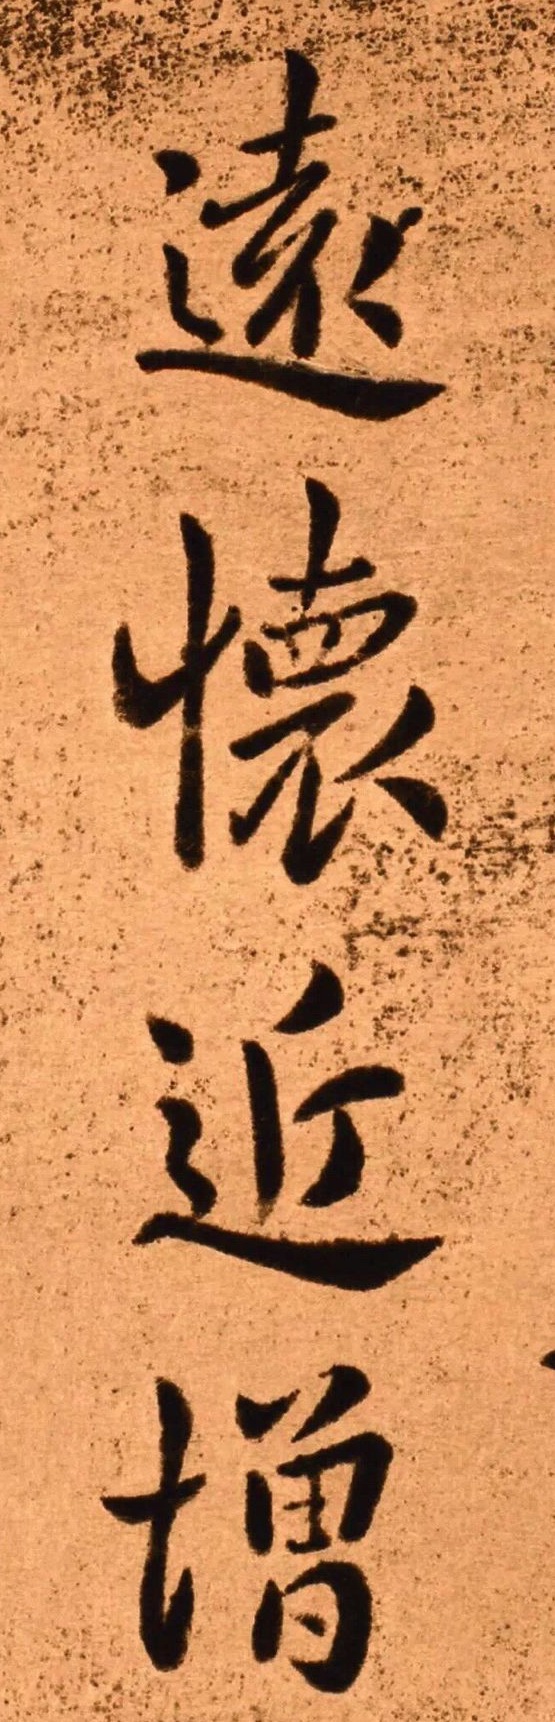 遠懷近增